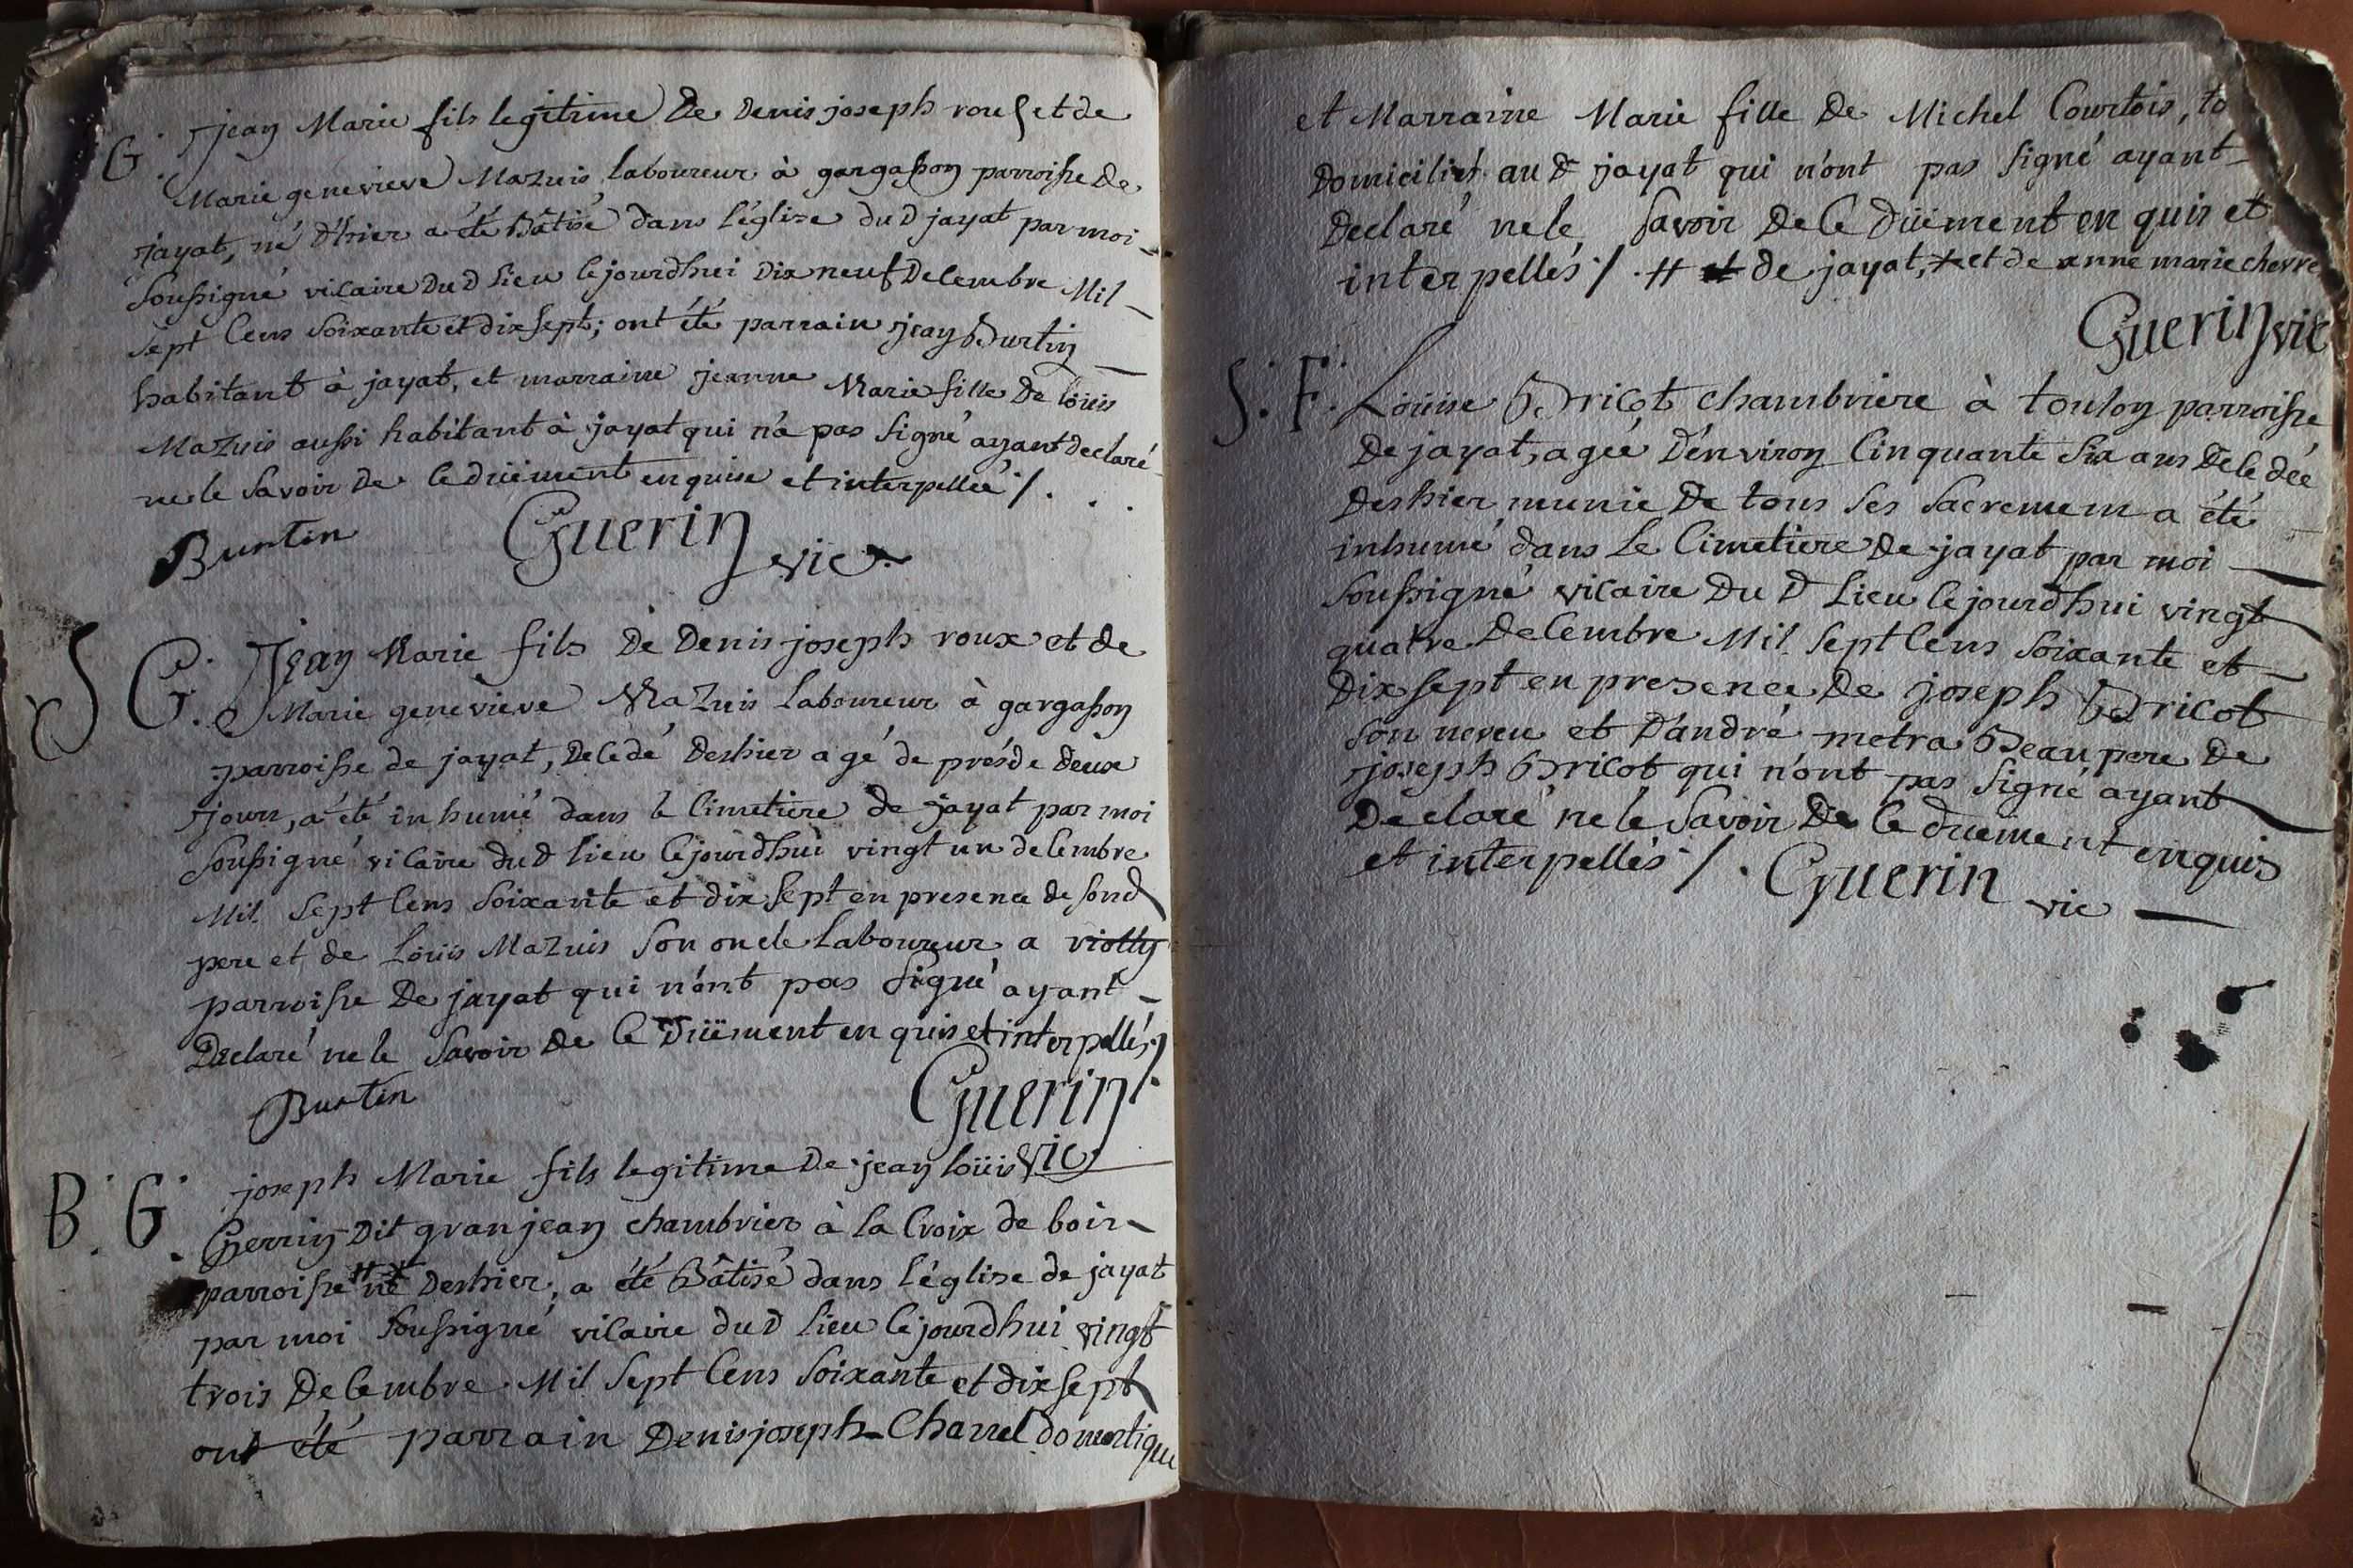 G. jean Marie fils legitime De Denis joseph roux et de
Marie genevieve Mazuis, laboureur à gargasson parroisse de
jayat, né d'hier a été Bâtisé dans l'église du d jayat par moi
soussigné vicaire du d lieu cejourdhui dix neuf decembre Mil
sept cens soixante et dix sept; ont été parrain jean Burtin
habitant à jayat, et marraine jeanne Marie fille de loüis
Mazuis aussi habitant à jayat qui n'a pas signé ayant declaré
ne le savoir de ce düement enquise et interpellée /.
Burtin Guerin vic
S G. Jean Marie fils De Denis joseph roux et de
Marie genevieve Mazuis laboureur à gargasson
parroisse de jayat, decedé deshier agé de près de deux
jours, a été inhumé dans le cimetiere de jayat par moi
soussigné vicaire du d lieu cejourdhui vingt un decembre
Mil sept cens soixante et dix sept en presence de sond
pere et de Loüis Mazuis son oncle laboureur a
parroisse De jayat qui n'ont pas signé ayant
Declaré ne le savoir De ce Düement enquis et interpellés /.
Burtin Guerin vic
B. G. joseph Marie fils legitime De jean loüis
Perrin Dit granjean chambrier à la Croix de bois
parroisse # né Deshier, a été Bâtisé dans l'église de jayat
par moi soussigné vicaire du d lieu cejourdhui vingt
trois Decembre Mil sept cens soixante et dix sept
ont été parrain Denis joseph Charrel domestique
et Marraine Marie fille De Michel Courtois, to
Domiciliés au d jayat qui n'ont pas signé ayant
Declaré ne le savoir De ce Düement enquis et
interpellés /. # de jayat, et de anne marie chevre
Guerin vic
S. F. Loüise Bricot chambriere à toulon parroisse
De jayat, agée D'environ cinquante six ans Decedée
Deshier munie De tous ses sacremens a été
inhumé dans Le Cimetiere De jayat par moi
soussigné vicaire Du D Lieu cejourdhui vingt
quatre Decembre Mil sept cens soixante et
Dix sept en presence De joseph Bricot
son neveu et D'andré metra Beau pere De
joseph Bricot qui n'ont pas signé ayant
Declaré ne le savoir De ce düement enquis
et interpellés /. Guerin vic